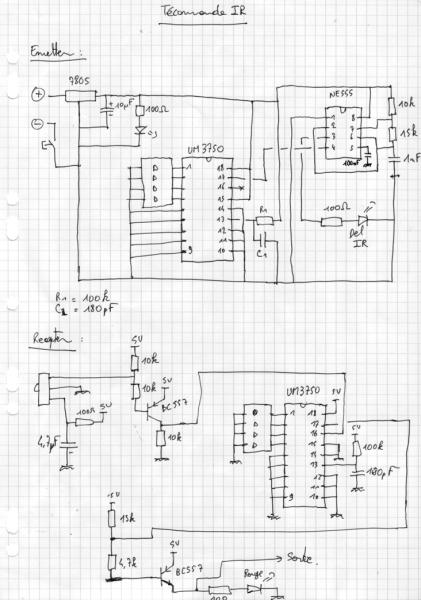 Télécommande IR
Emetteur :
7805
NE555
10µF
100Ω
1 8
2 7
3 6
4 5
10k
15k
100nF
1nF
UM3750
1 18
17
16
15
14
13
12
11
9 10
R1
C1
100Ω
Del
IR
R1 = 100k
C1 = 180pF
Recepteur :
5V
10k
10k
5V
BC557
10k
100Ω
5V
4,7µF
UM3750
5V
1 18
17
16
15
14
13
12
11
9 10
5V
100k
180pF
5V
15k
4,7k
5V
BC557
Sortie
Rouge